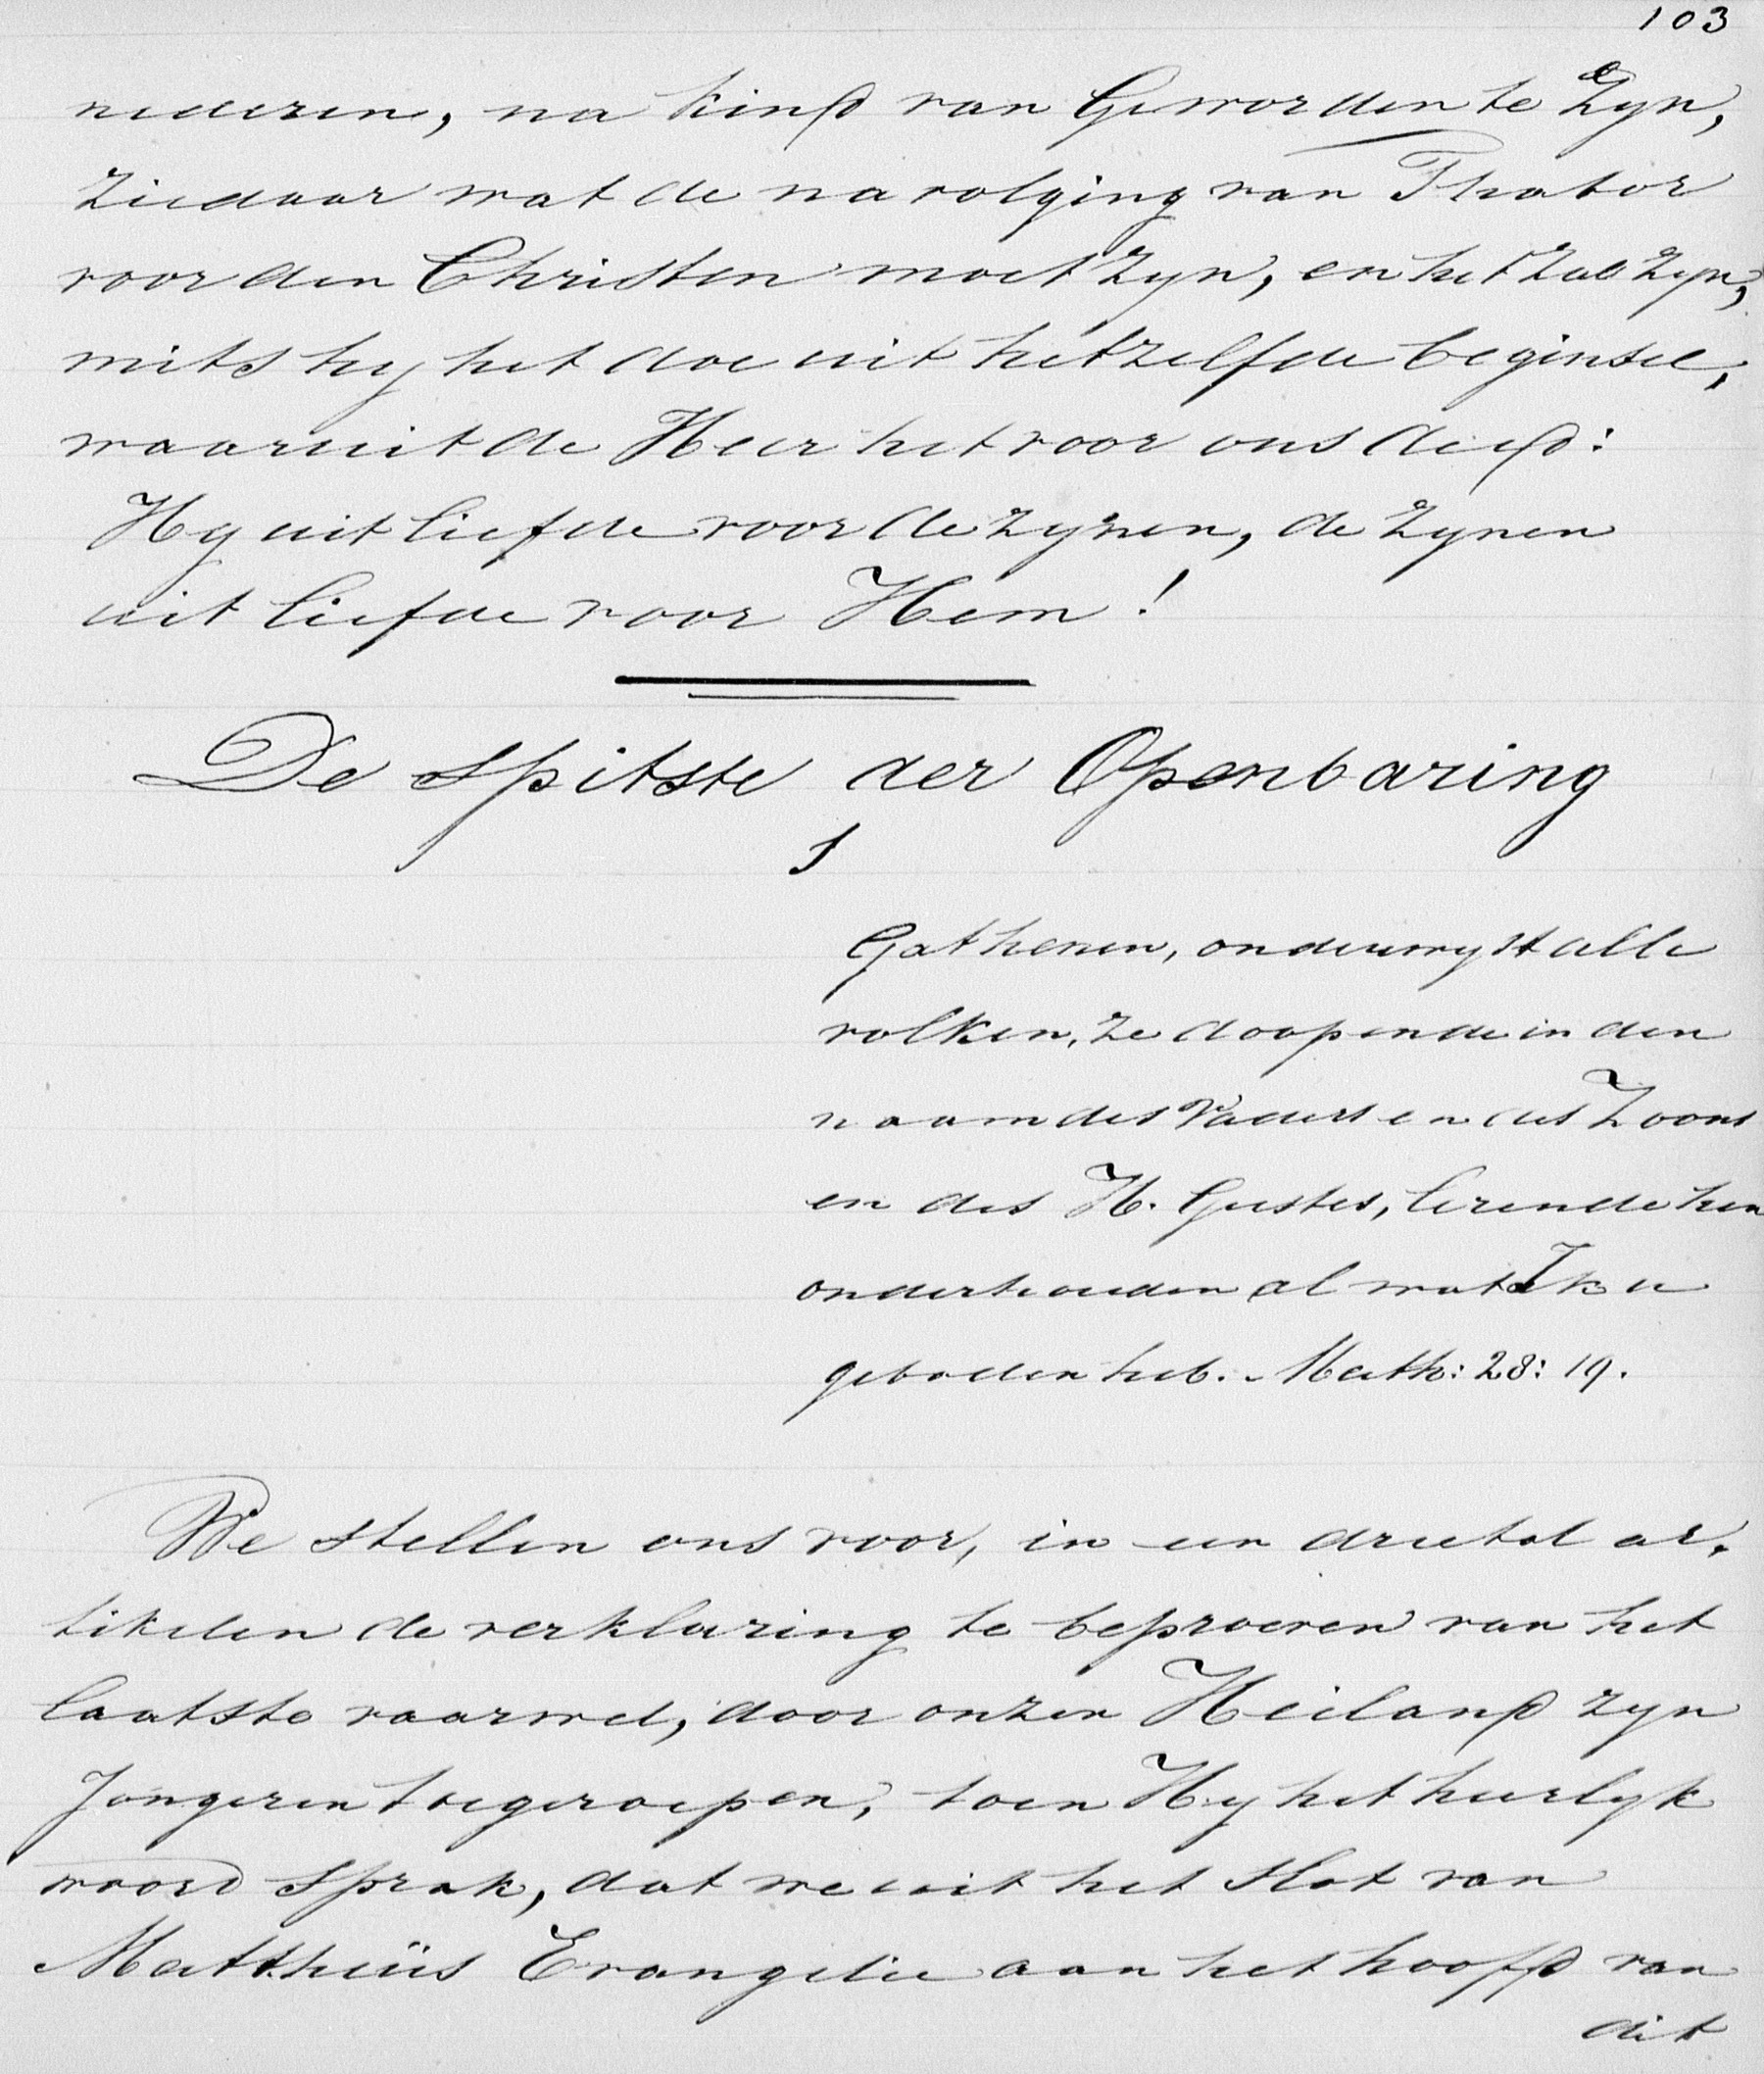 103
nederen, na kind van God geworden te zyn,
Ziedaar wat de navolging van Thabor
voor den Christen moet zyn, en het zal zyn,
mits hy het doe uit hetzelfde beginsel,
waaruit de Heer het voor ons deed:
Hy uit liefde voor de zynen, de zynen
uit liefde voor Hem!
De Spitste der Openbaring
1
Gat henen, onderwyst alle
volken, ze doopende in den
naam des Vaders en des Zoons
en des H. Geestes, lerende hen
onderhouden al wat Ik u
geboden heb. Math: 28: 19.
We stellen ons voor, in een drietal ar-
tikelen de verklaring te beproeven van het
laatste vaarwel, door onzen Heiland zyn
Jongeren toegeroepen, toen Hy het heerlyk
woord sprak, dat we uit het slot van
Mattheüs Evangelie aan het hoofd van
dit